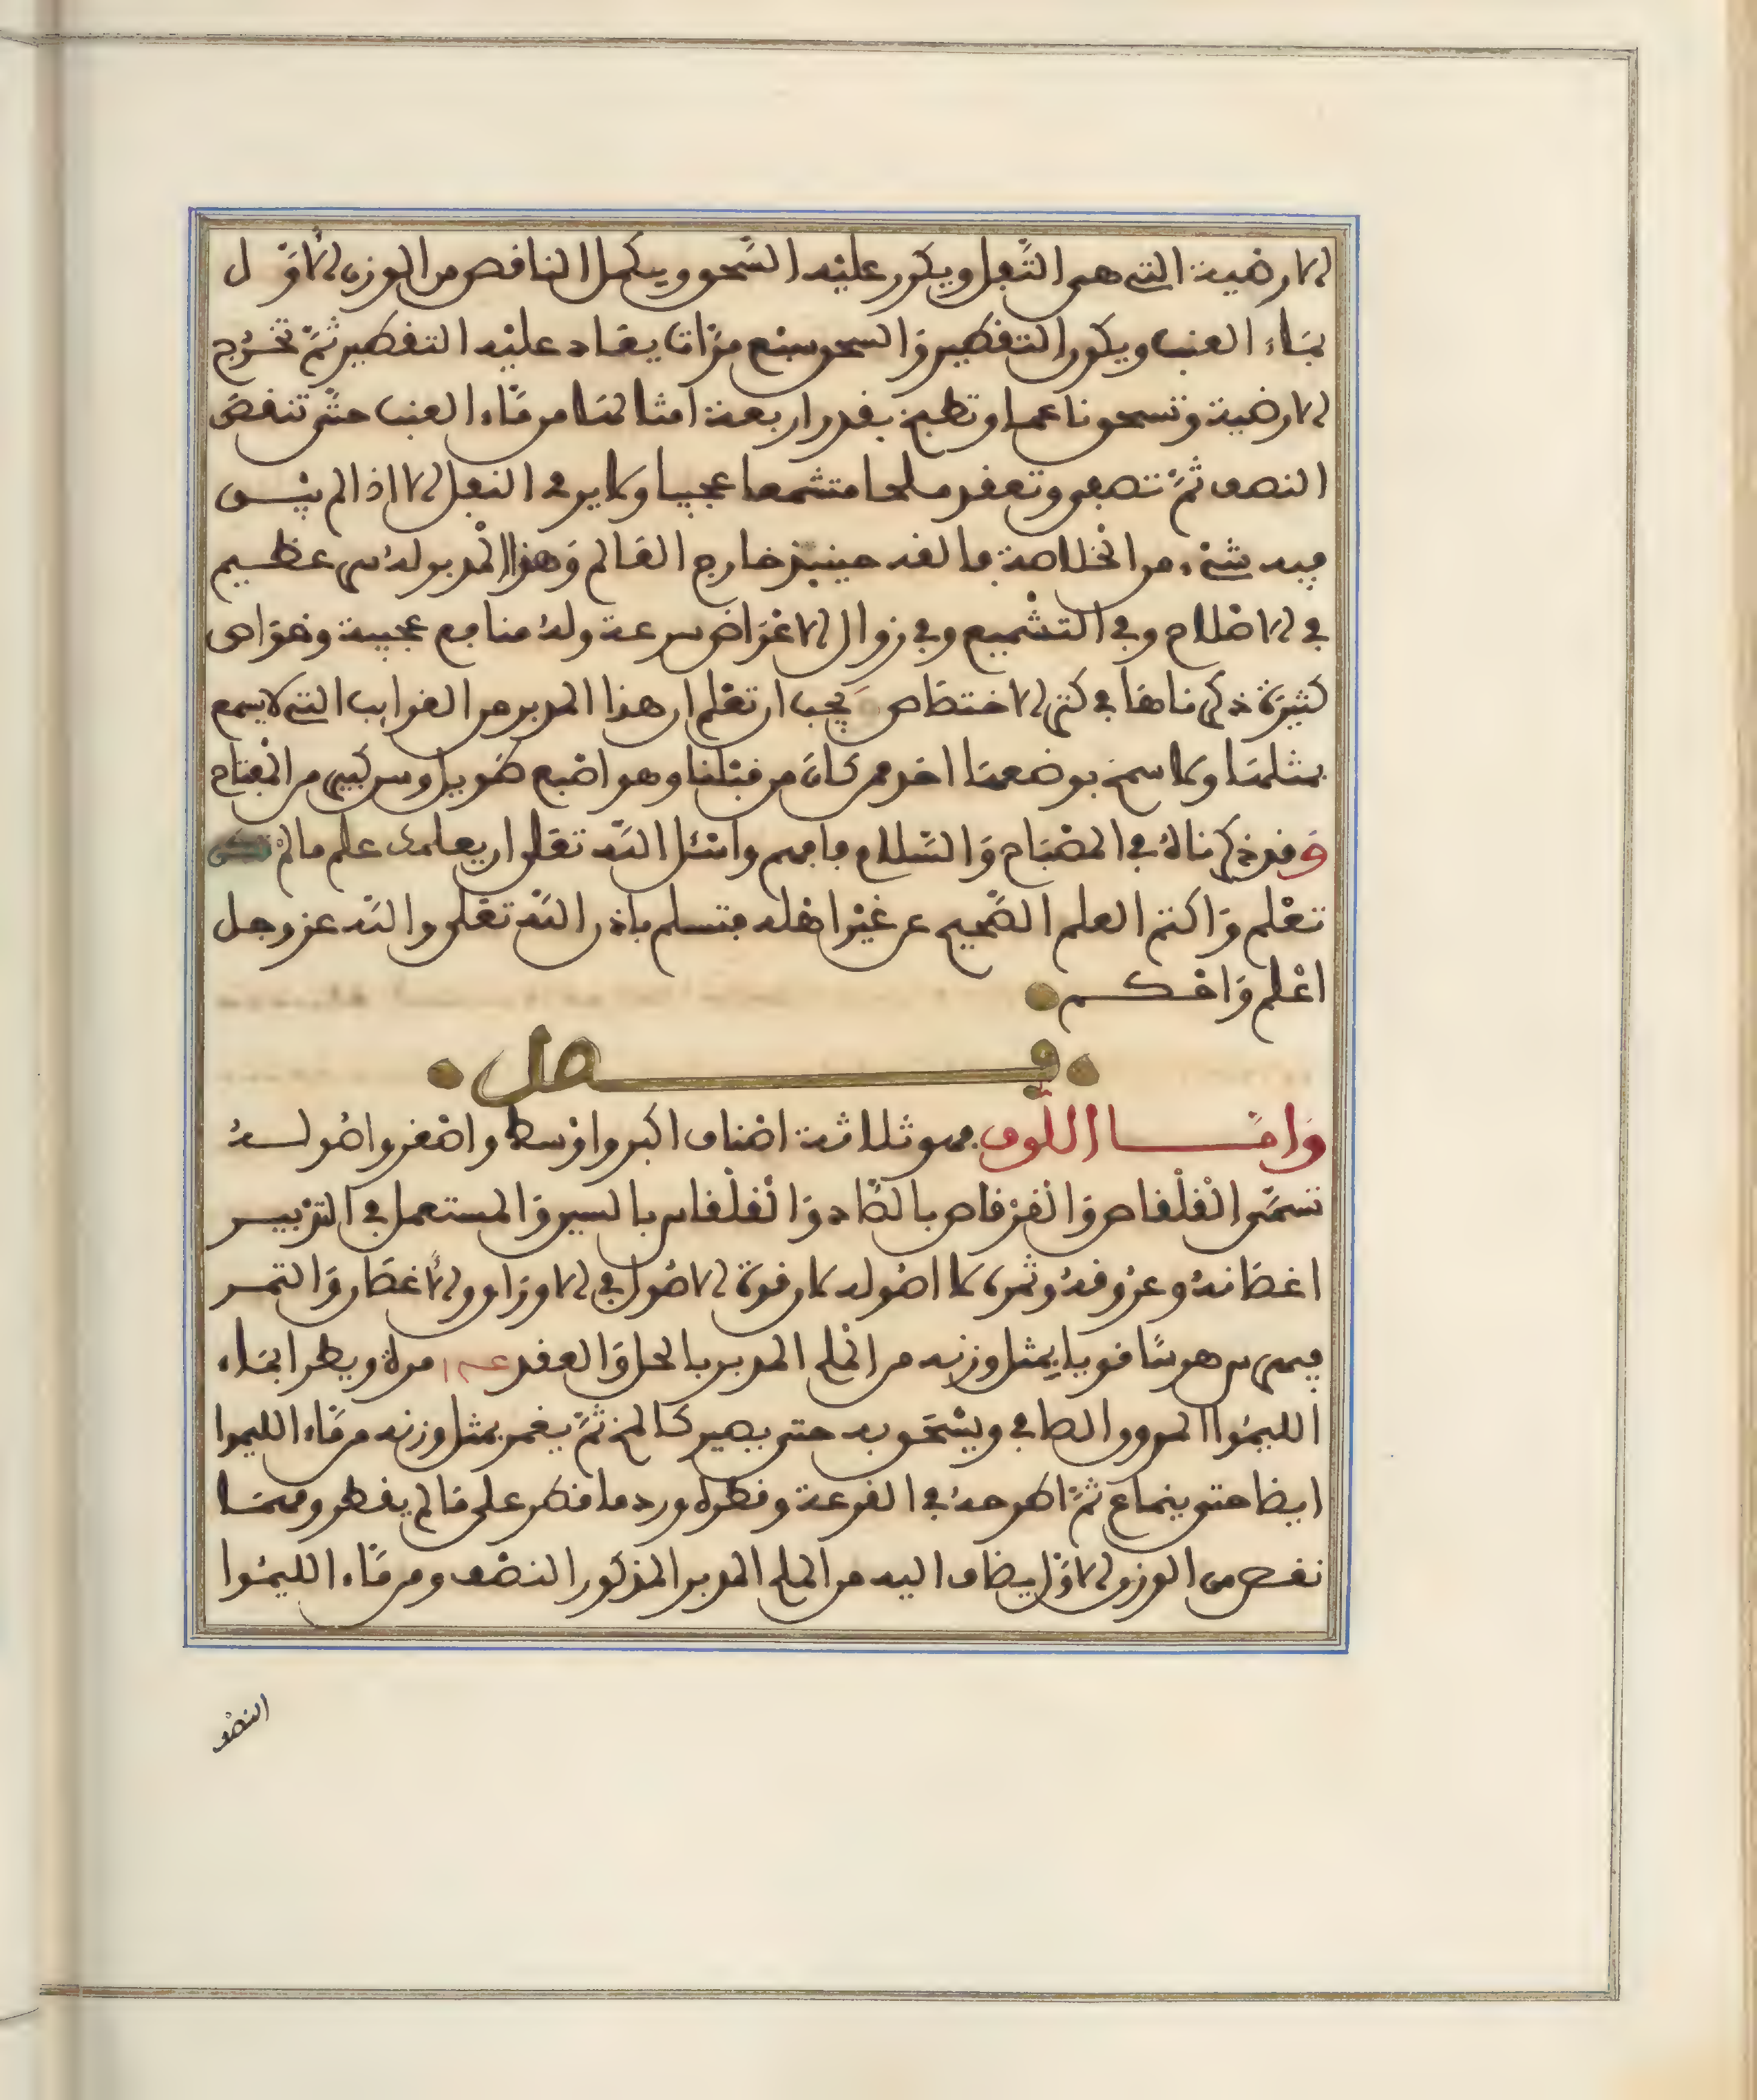 الارضية التى هى الثفل ويكرر عليه السحق ويكمل الناقص من الوزن الاول
بماء العنب ويكرر التقطير والسحق سبع مرات يعاد عليه التقطير ثم تخرج
الارضية وتسحق ناعما وتطبخ بقدر اربعة امثالها من ماء العنب حتى تنقص
النصف ثم تصفى وتعقد ملحا متشمعا عجيبا ولا يرمى الثفل الا اذا لم يبق
فيه شىء من الخلاصة فالقه حينئذ خارج العالم وهذا المدبر له سر عظيم
فى الاصلاح وفى التشميع وفى زوال الاعراض بسرعة وله منافع عجيبة وخواص
كثيرة ذكرناها فى كتب الاختصاص يجب ان تعلم ان هذا المدبر من الغرايب التى لا يسمع
بمثلها ولا سمح بوضعها احد ممن كان من قبلنا وهو اصبع طويل وسر كبير من المفتاح
وقد ذكرناه فى المصباح والسلام فافهم واسئل الله تعلى ان يعلمك علم ما لم تكن
تعلم واكتم العلم الصحيح عن غير اهله فتسلم باذن الله تعلى والله عز وجل
اعلم واحكم
فصل
واما اللوف فهو ثلاثة اصناف اكبر واوسط واصغر واصوله
تسمى القلقاص والقرقاص بالصاد والقلقاس بالسين والمستعمل فى التدبير
اغصانه وعروقه وثمره لا اصوله لان قوة الاصول فى الاوراق والاغصان والثمر
فيهرس هرسا قويا بمثل وزنه من الملح المدبر بالحل والعقد مرة ويطرا بماء
الليموا المروق الصافى ويسحق به حتى يصير كالمخ ثم يغمر بمثل وزنه من ماء الليموا
ايضا حتى ينماع ثم اطرحه فى القرعة وقطره ورد ما قطر على ما لم يقطر ومهما
نقص من الوزن الاول يضاف اليه من الملح المدبر المذكور النصف ومن ماء الليموا
النصف